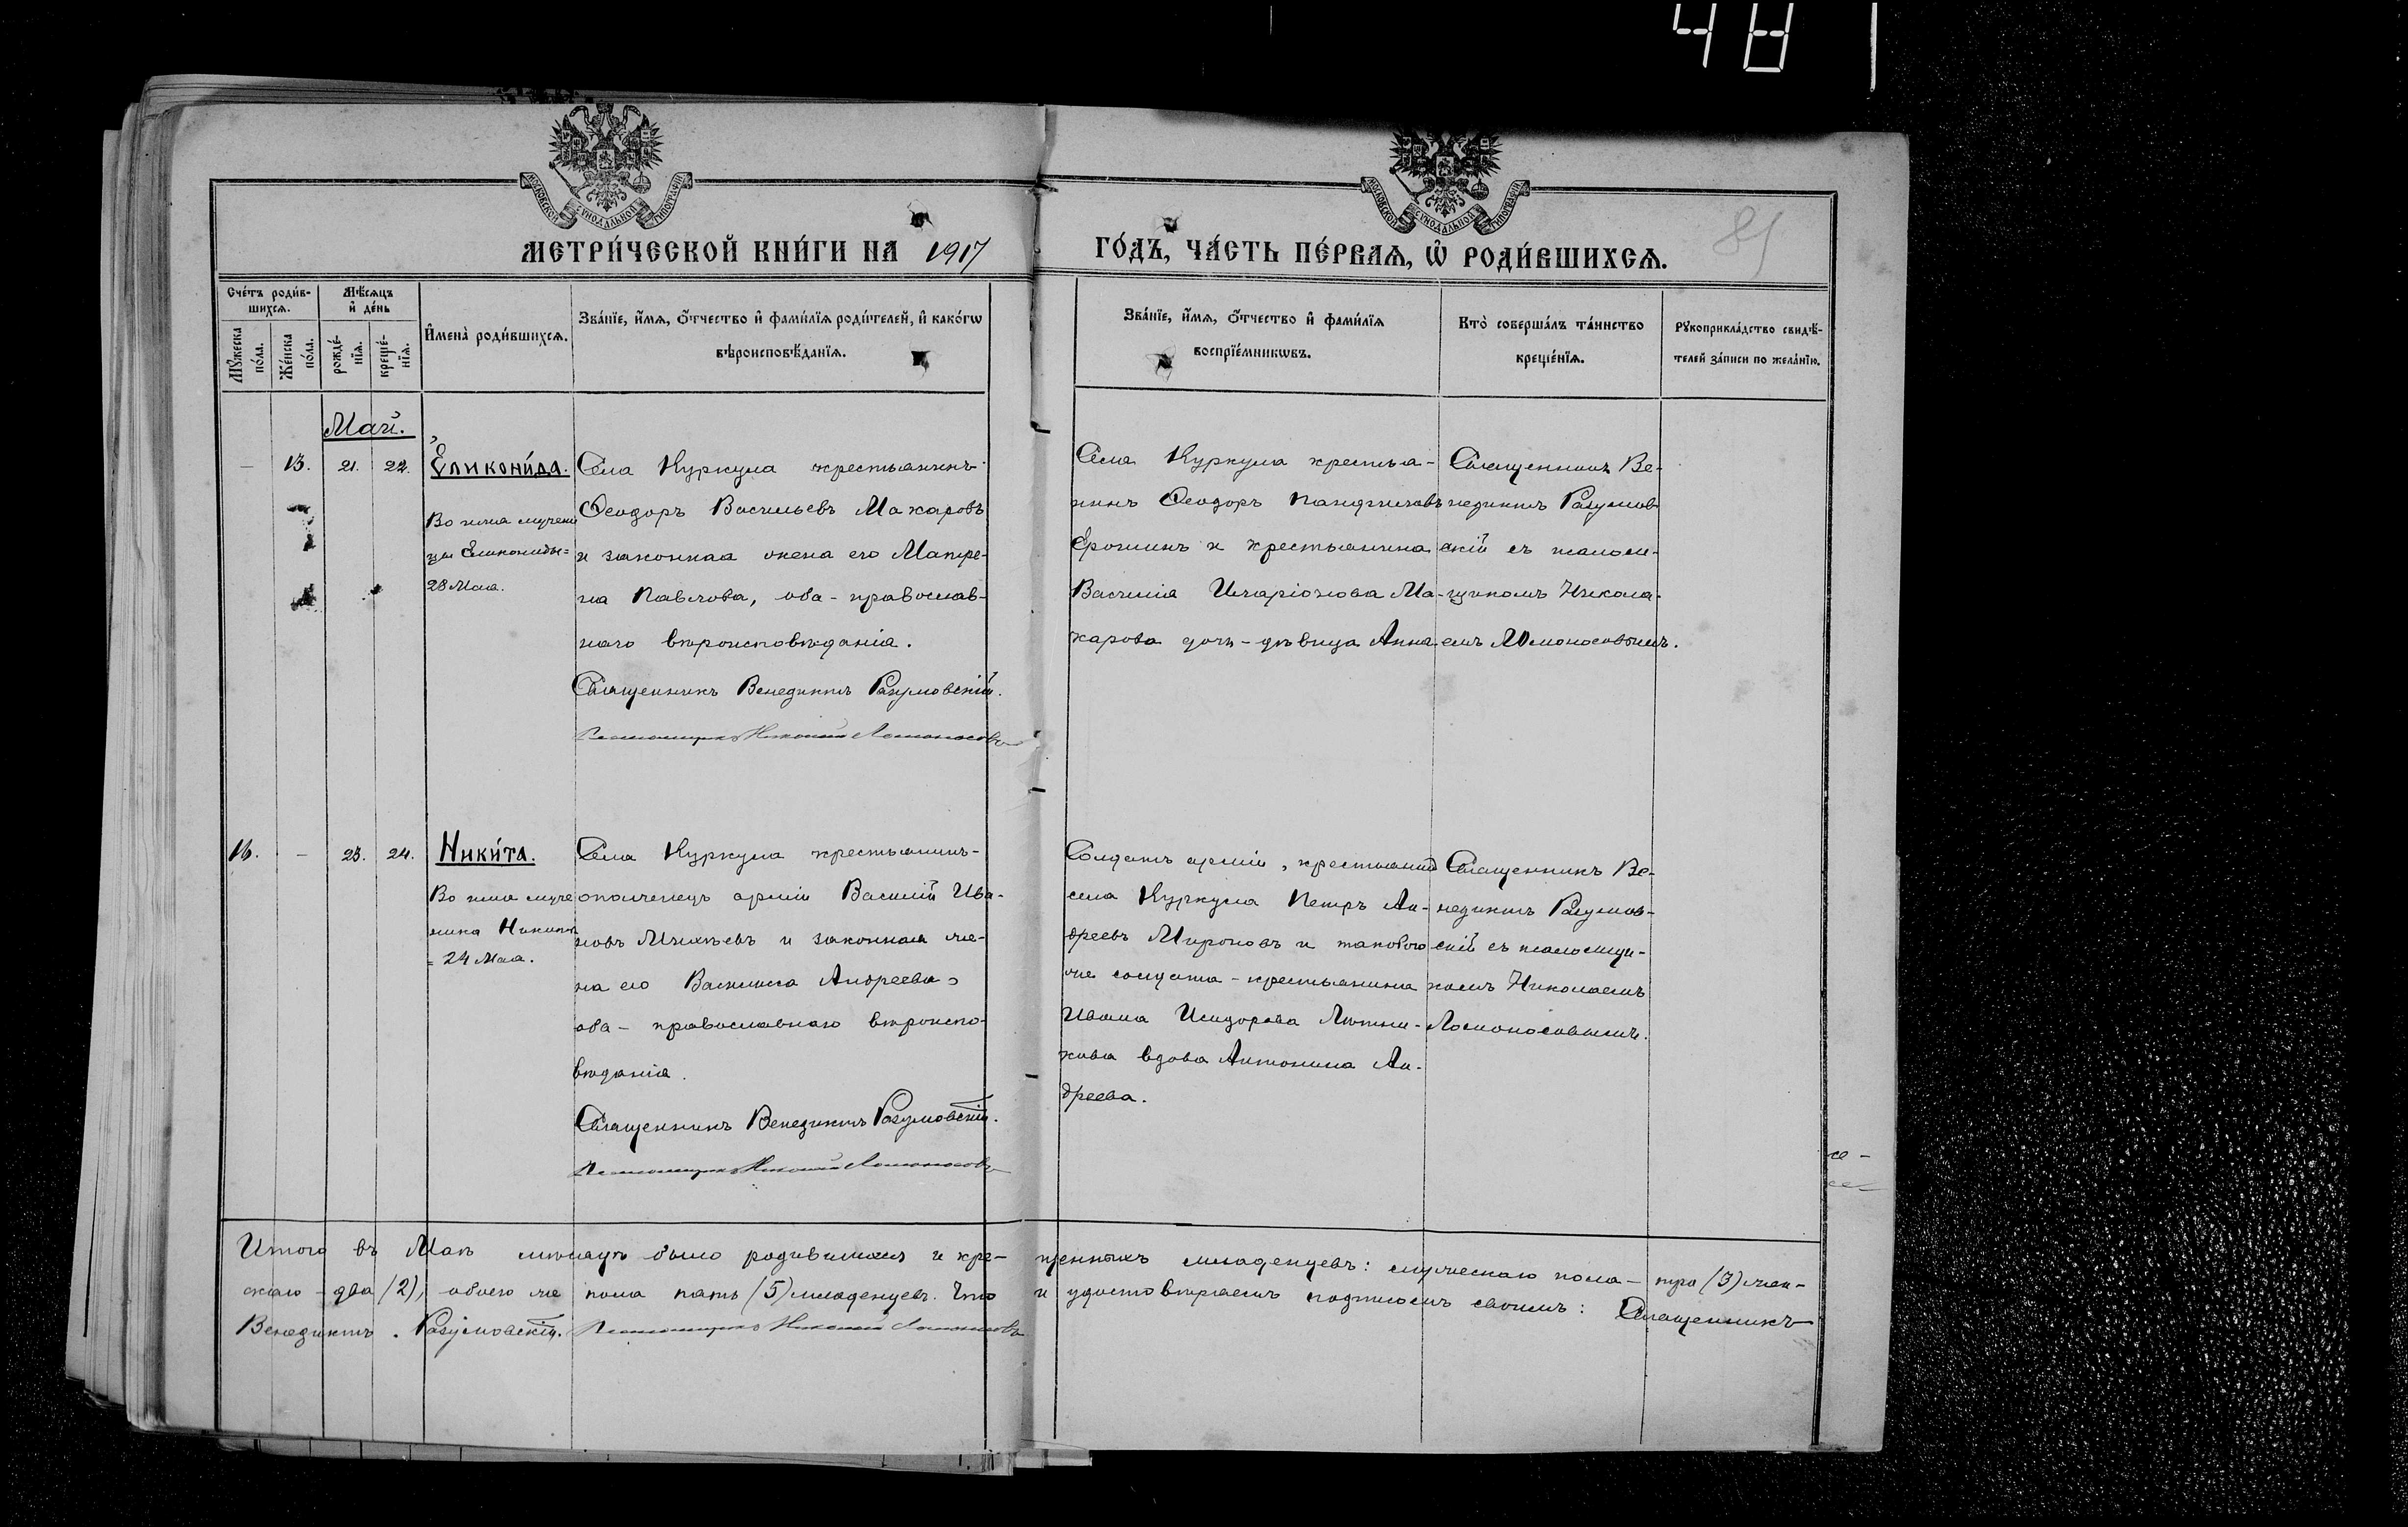 481
МОСКОВСКОЙ СѴНОДАЛЬНОЙ ТИПОГРАФІИ
МОСКОВСКОЙ СѴНОДАЛЬНОЙ ТИПОГРАФІИ
МЕТРИ́ЧЕСКОЙ КНИ́ГИ НА 1917
ГО́ДЪ, ЧА́СТЬ ПЕ́РВАѦ, Ѡ҆ РОДИ́ВШИХСѦ.
85
Сче́тъ роди́в-
шихсѧ.
Мꙋ́жеска по́ла.
Же́нска по́ла.
Мѣ́сѧцъ
и҆ де́нь
рожде́-
нїѧ.
креще́-
нїѧ.
И҆мена̀ роди́вшихсѧ.
Зва́нїе, и҆́мѧ, ѻ҆́тчество и҆ фами́лїѧ роди́телей, и҆ како́гѡ
вѣроисповѣ́данїѧ.
Зва́нїе, и҆́мѧ, ѻ҆́тчество и҆ фами́лїѧ
воспрїе́мникѡвъ.
Кто̀ соверша́лъ та́инство
креще́нїѧ.
Рꙋкоприкла́дство свидѣ́-
телей за́писи по жела́нїю.
Май.
— 13. 21. 22. Еликони́да.
Во имя мучени
цы Еликониды=
28 Мая.
Села Куркула крестьянинъ
Ѳеодоръ Васильевъ Макаровъ
и законная жена его Матре-
на Павлова, оба - православ-
наго вѣроисповѣданія.
Священникъ Венедиктъ Разумовскій.
Псаломщикъ Николай Ломоносовъ
Села Куркула крестья-
нинъ Ѳеодоръ
Ерошинъ и крестьянина
Василія Иларіонова Ма-
карова дочь - дѣвица Анна.
Священникъ Ве-
недиктъ Разумов
скій съ псаломщ-
щикомъ Никола-
емъ Ломоносовымъ.
16. — 23. 24. Ники́та.
Во имя муче
ника Никиты
= 24 Мая.
Села Куркула крестьянинъ-
ополченецъ арміи Василій Ива-
новъ и законная же-
на его Василиса Андреева,
оба - православнаго вѣроиспо-
вѣданія.
Священникъ Венедиктъ Разумовскій.
Псаломщикъ Николай Ломоносовъ
Солдатъ арміи, крестьянинъ
села Куркула Петръ Ан-
дреевъ Мироновъ и таковаго
же солдата - крестьянина
Ивана Исидорова Лютни-
кова вдова Антонина Ан-
дреева.
Священникъ Ве-
недиктъ Разумов-
скій съ псаломщи-
комъ Николаемъ
Ломоносовымъ.
Итого въ Маѣ мѣсяцѣ было родившихся и кре- щенныхъ младенцевъ: мужескаго пола - три (3) жен-
скаго - два (2), обоего же пола пять (5) младенцевъ. Что и удостовѣряемъ подписомъ своимъ: Священникъ
Венедиктъ Разумовскій. Псаломщикъ Николай Ломоносовъ